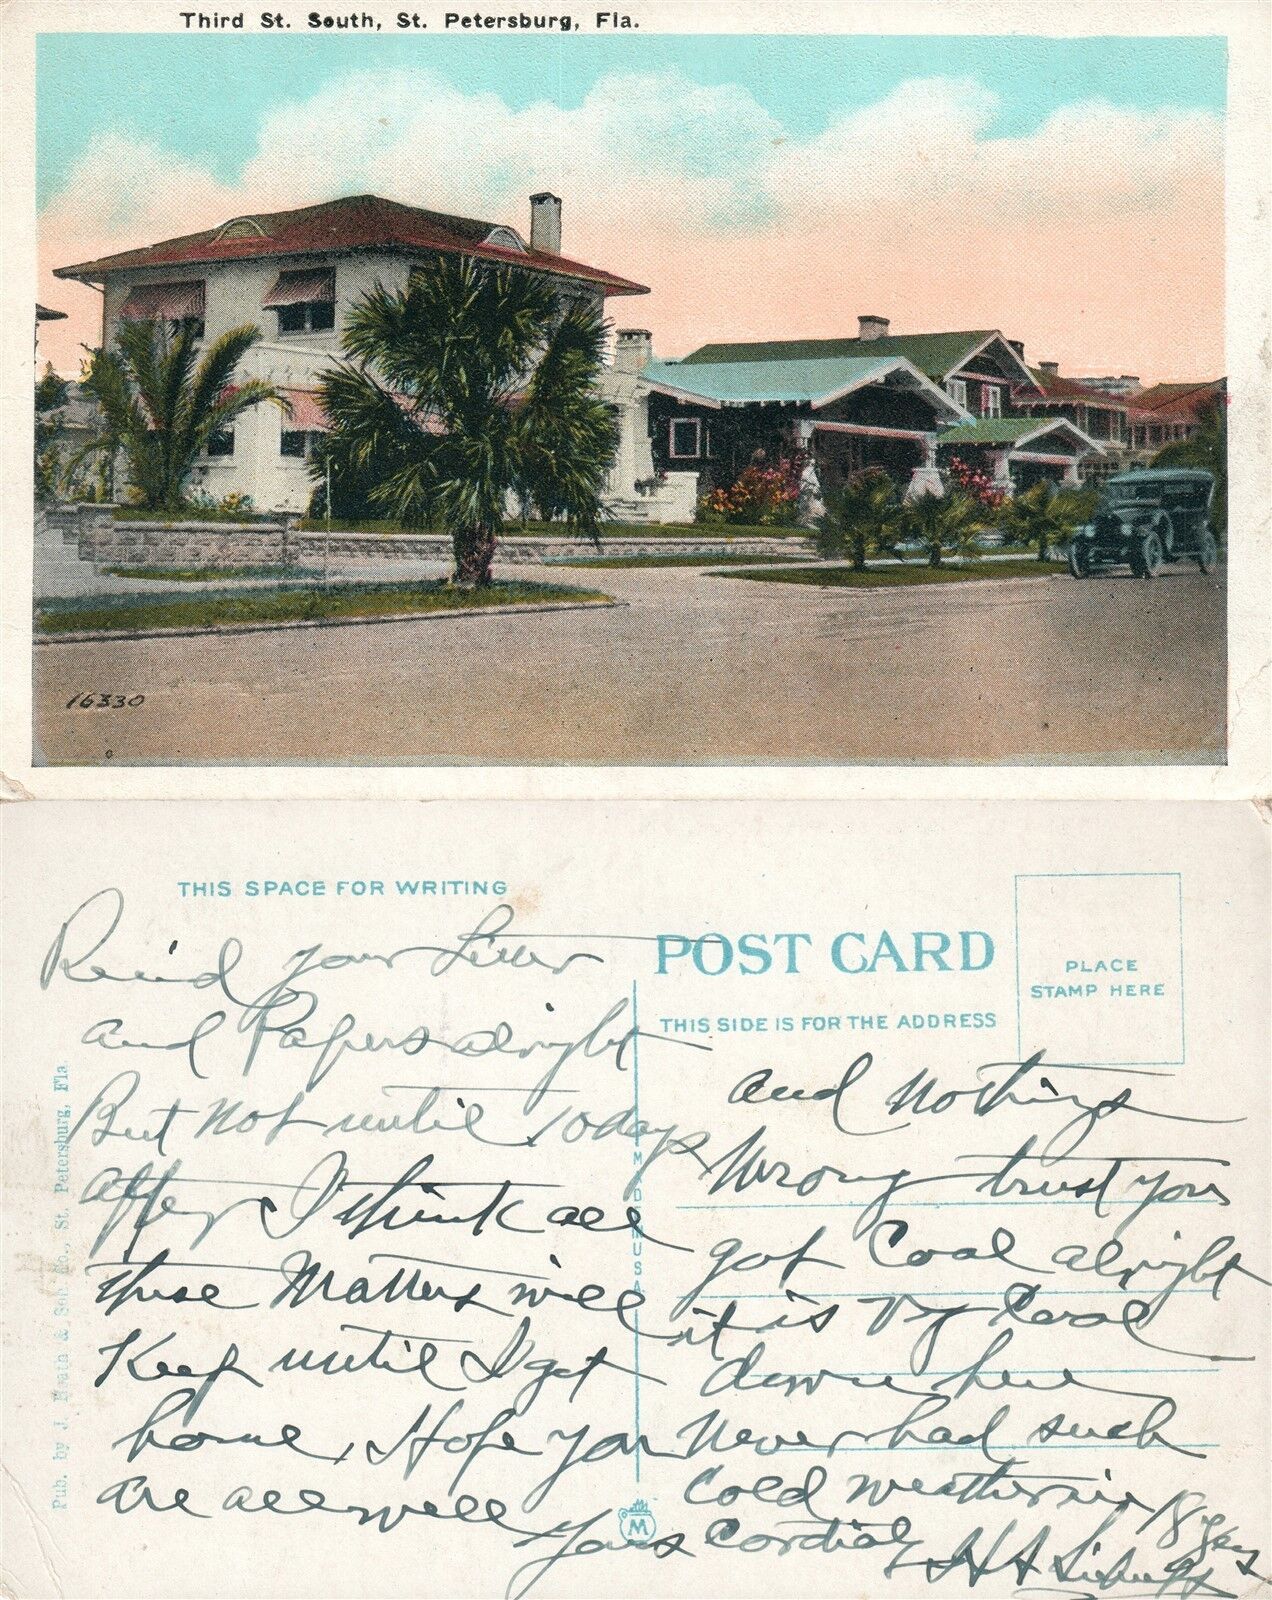 Third St. South, St. Petersburg, Fla.
16330
THIS SPACE FOR WRITING
Pub. by J. Heath & Son Co., St. Petersburg, Fla.
MADE IN USA
M
POST CARD
THIS SIDE IS FOR THE ADDRESS
PLACE
STAMP HERE
Recid your Letter
and Papers alright
But not until 10 days
after I think all
these Matters will
Keep until I get
home, Hope you
are all well
and nothing
Wrong trust you
got Coal alright
it is Very Cool
down here
Never had such
Cold weather in 18 years
Yours Cordialy
H A